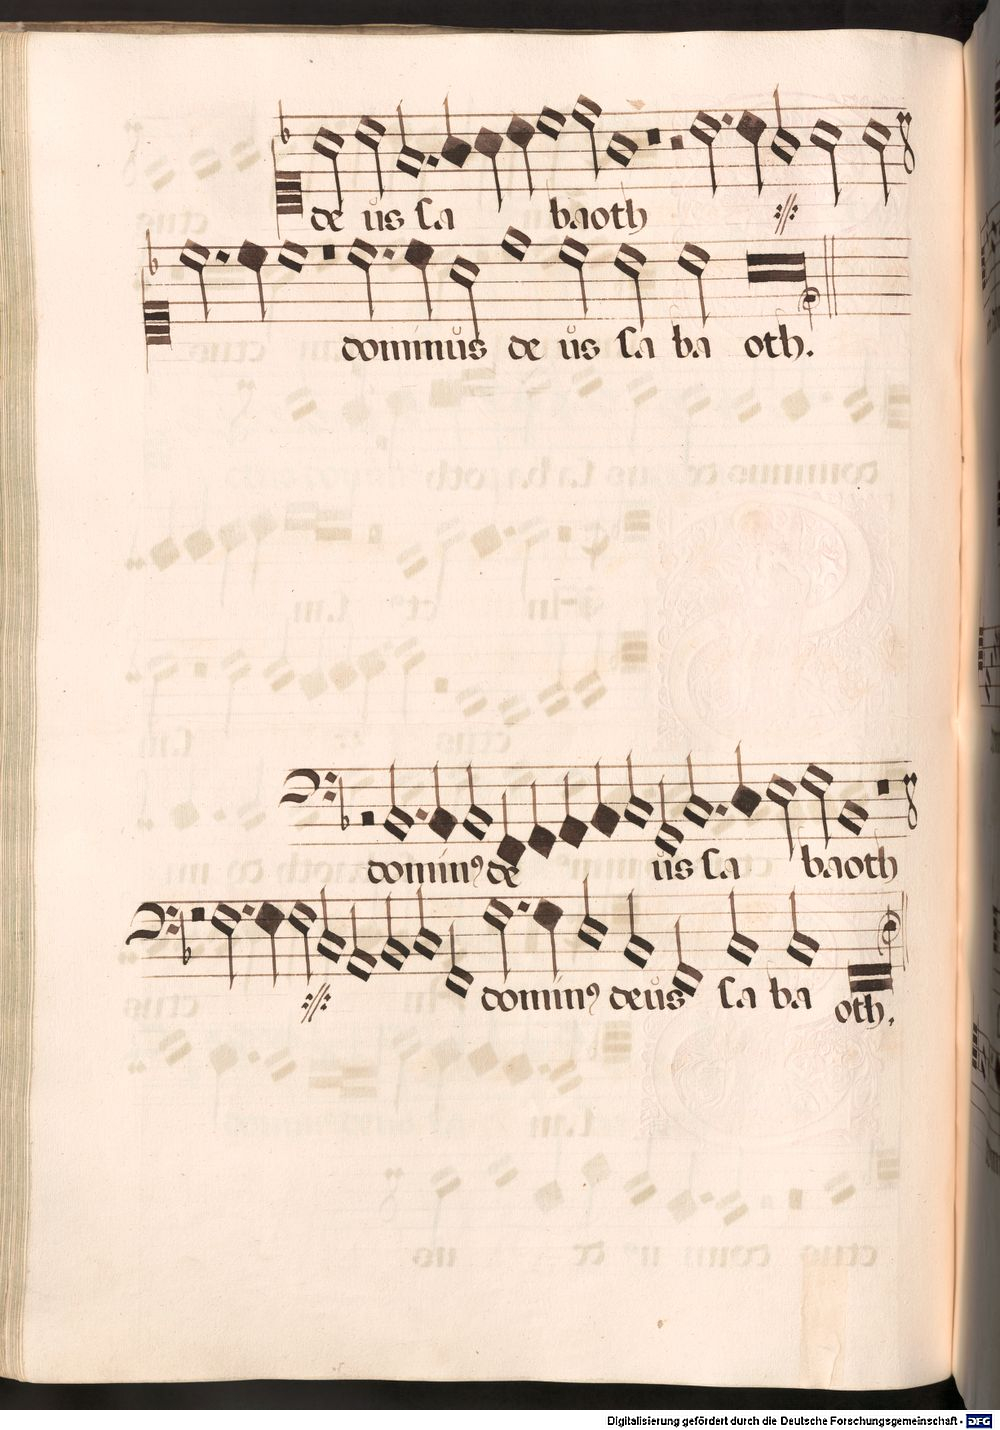 de us sa baoth
dominus de us sa ba oth.
dominꝰ de us sa baoth
dominꝰ deus sa ba oth.
Digitalisierung gefördert durch die Deutsche Forschungsgemeinschaft - DFG